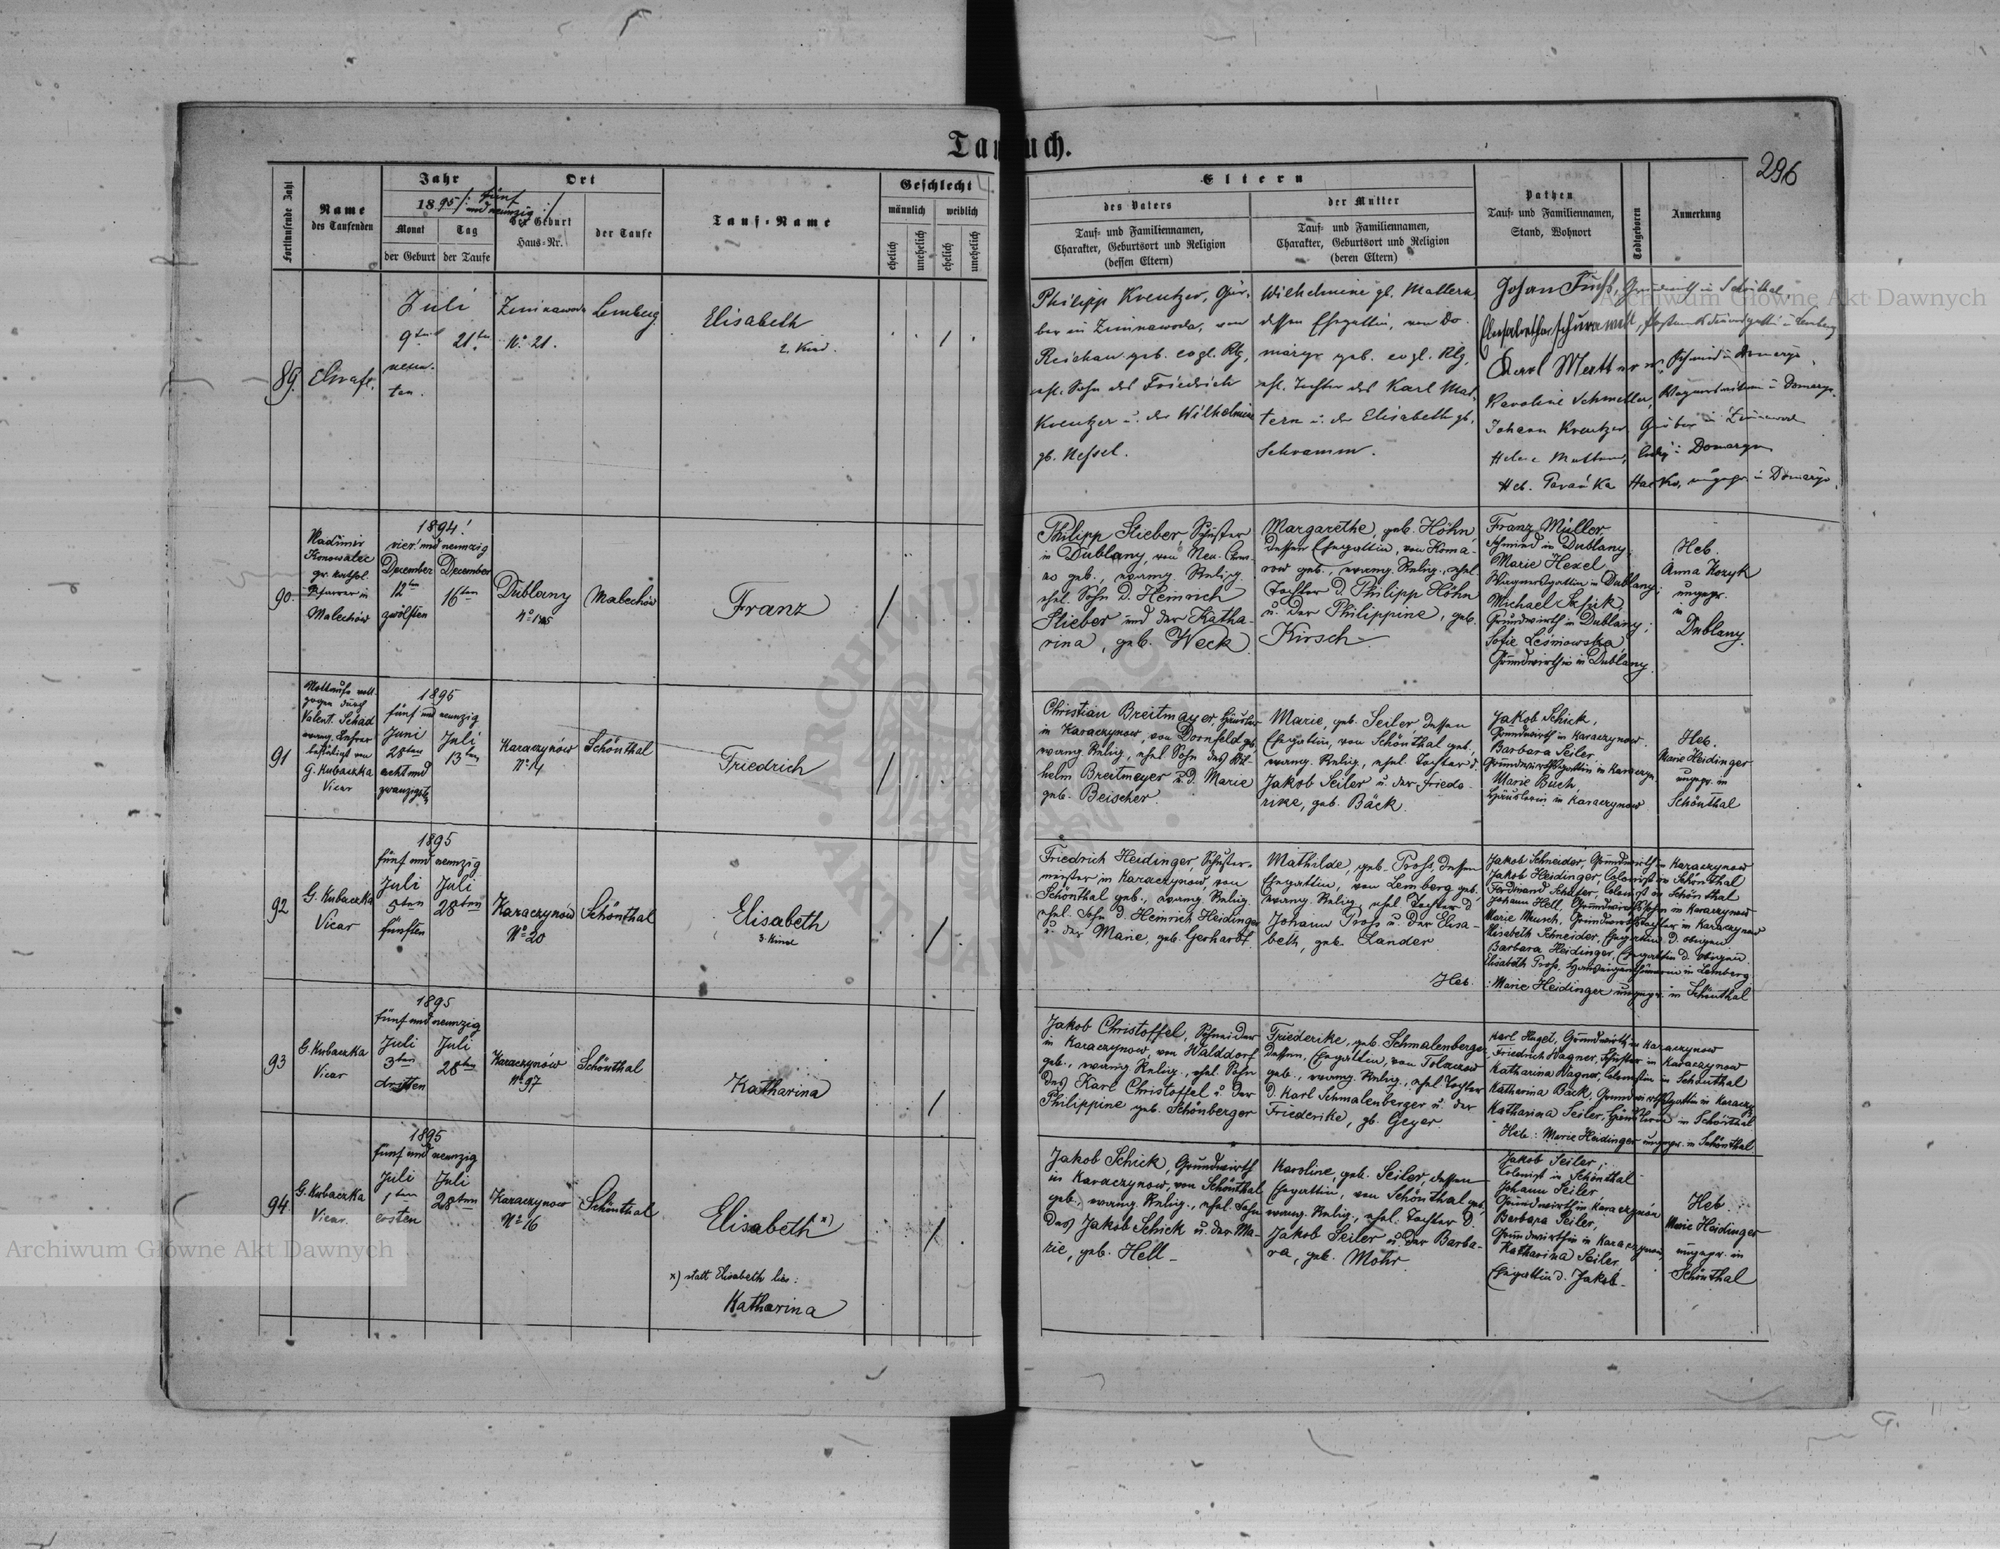 Taufbuch.
296
Fortlaufende Zahl
Name
des Taufenden
Jahr
1895 /: fünf
und neunzig :/
Monat
Tag
der Geburt
der Taufe
Ort
der Geburt
Haus-Nr.
der Taufe
Tauf-Name
Geschlecht
männlich
weiblich
ehelich
unehelich
ehelich
unehelich
Eltern
des Vaters
Tauf- und Familiennamen,
Charakter, Geburtsort und Religion
(dessen Eltern)
der Mutter
Tauf- und Familiennamen,
Charakter, Geburtsort und Religion
(deren Eltern)
Pathen
Tauf- und Familiennamen,
Stand, Wohnort
Todtgeboren
Anmerkung
89.
Juli
9ten
neun-
ten.
21ten
Zimnawoda
No. 21.
Lemberg
Elisabeth
2. Kind.
Philipp Kreutzer, Grü-
ber in Zimnawoda, von
Reichau geb. evgl. Rlg.
ehl. Sohn des Friedrich
Kreutzer u. der Wilhelmine
gb. Nessel.
Wilhelmine gb. Mattern,
dessen Ehegattin, von Do-
marys geb. evgl. Rlg.
ehl. Tochter des Karl Mat-
tern u. der Elisabeth gb.
Schramm.
Johann Fuchs, Grundwirth in
Karl Mattern, Schmied in
Karoline Schmeller, in
Johann Kreutzer, Grüber in Zimnawoda
Helene Mattern, ledig in
Heb. Ha ko, ungepr. in
90.
Wladimir
Konowalec
gr. kathol.
Pfarrer in
Malechów
1894!
vier und neunzig
December
12ten
zwölften
December
16ten
Dublany
No 145
Malechów
Franz
Philipp Stieber, Schuster
in Dublany, von Neu-
geb., evang. Relig.
ehel. Sohn d. Heinrich
Stieber und der Katha-
rina, geb. Weck
Margarethe, geb. Höhn,
dessen Ehegattin, von Koma-
row geb., evang. Relig., ehel.
Tochter d. Philipp Höhn
u. der Philippine, geb.
Kirsch
Franz Müller
Schmied in Dublany;
Marie Hexel
Wagnersgattin in Dublany;
Michael
Grundwirth in Dublany;
Sofie Lesniowska
Grundwirthin in Dublany.
Heb.
Anna Kozyk
ungepr.
in
Dublany.
91
Nottaufe voll-
zogen durch
Valent. Schad
evang. Lehrer
bestätigt von
G. Kubaczka
Vicar
1895
fünf und neunzig
Juni
28ten
acht und
zwanzigsten
Juli
13ten
Karaczynów
No 14
Schönthal
Friedrich
Christian Breitmayer, Häusler
in Karaczynow, von Dornfeld gb.
evang. Relig., ehel. Sohn des Wil-
helm Breitmeyer u. d. Marie
geb. Beischer.
Marie, geb. Seiler dessen
Ehegattin, von Schönthal geb.,
evang. Relig., ehel. Tochter d.
Jakob Seiler u. der Friede-
rike, geb. Bäck.
Jakob Schick,
Grundwirth in Karaczynow.
Barbara Seiler
Grundwirthsgattin in Karaczyn.
Marie Buch
Häuslerin in Karaczynow
Heb.
Marie Heidinger
ungepr. in
Schönthal
92
G. Kubaczka
Vicar
1895
fünf und neunzig
Juli
5ten
fünften
Juli
28ten
Karaczynów
No 20
Schönthal
Elisabeth
3. Kind
Friedrich Heidinger, Schuster-
meister in Karaczynow, von
Schönthal geb., evang. Relig.
ehel. Sohn d. Heinrich Heidinger
u. der Marie, geb. Gerhardt.
Mathilde, geb. Pross, dessen
Ehegattin, von Lemberg geb.
evang. Relig., ehel. Tochter d.
Johann Pross u. der Elisa-
beth, geb. Lander
Jakob Schneider, Grundwirth in Karaczynow
Jakob Heidinger, Colonist in Schönthal
Ferdinand Schäfer, Colonist in Schönthal
Johann Hell, Grundwirthssohn in Karaczynow
Marie Mensch, Grundwirthstochter in Karaczynow
Elisabeth Schneider, Ehegattin d. obigen
Barbara Heidinger, Ehegattin d. obigen
Elisabeth Pross, in Lemberg
Heb. : Marie Heidinger ungepr. in Schönthal
93
G. Kubaczka
Vicar
1895
fünf und neunzig
Juli
3ten
dritten
Juli
28ten
Karaczynów
No 97
Schönthal
Katharina
Jakob Christoffel, Schneider
in Karaczynow, von Walddorf
geb., evang. Relig., ehel. Sohn
des Karl Christoffel u. der
Philippine geb. Schönberger
Friederike, geb. Schmalenberger
dessen Ehegattin, von
geb., evang. Relig., ehel. Tochter
d. Karl Schmalenberger u. der
Friederike, gb. Geyer
Karl Hugel, Grundwirth in Karaczynow
Friedrich Wagner, Schuster in Karaczynow
Katharina Wagner, Colonistin in Schönthal
Katharina Bäck, Grundwirthsgattin in Karaczy.
Katharina Seiler, Häuslerin in Schönthal
Heb.: Marie Heidinger ungepr. in Schönthal
94
G. Kubaczka
Vicar.
1895
fünf und neunzig
Juli
1ten
ersten
Juli
28ten
Karaczynow
No 16
Schönthal
Elisabeth x)
x) statt Elisabeth lies:
Katharina
Jakob Schick, Grundwirth
in Karaczynow, von Schönthal
geb., evang. Relig., ehel. Sohn
des Jakob Schick u. der Ma-
rie, geb. Hell -
Karoline, geb. Seiler, dessen
Ehegattin, von Schönthal geb.
evang. Relig., ehel. Tochter d.
Jakob Seiler u. der Barba-
ra, geb. Mohr.
Jakob Seiler,
Colonist in Schönthal
Johann Seiler
Grundwirth in Karaczynów
Barbara Seiler,
Grundwirthin in Karaczynow,
Katharina Seiler
Ehegattin d. Jakob -
Heb.
Marie Heidinger
ungepr. in
Schönthal
Archiwum Główne Akt Dawnych
Archiwum Główne Akt Dawnych